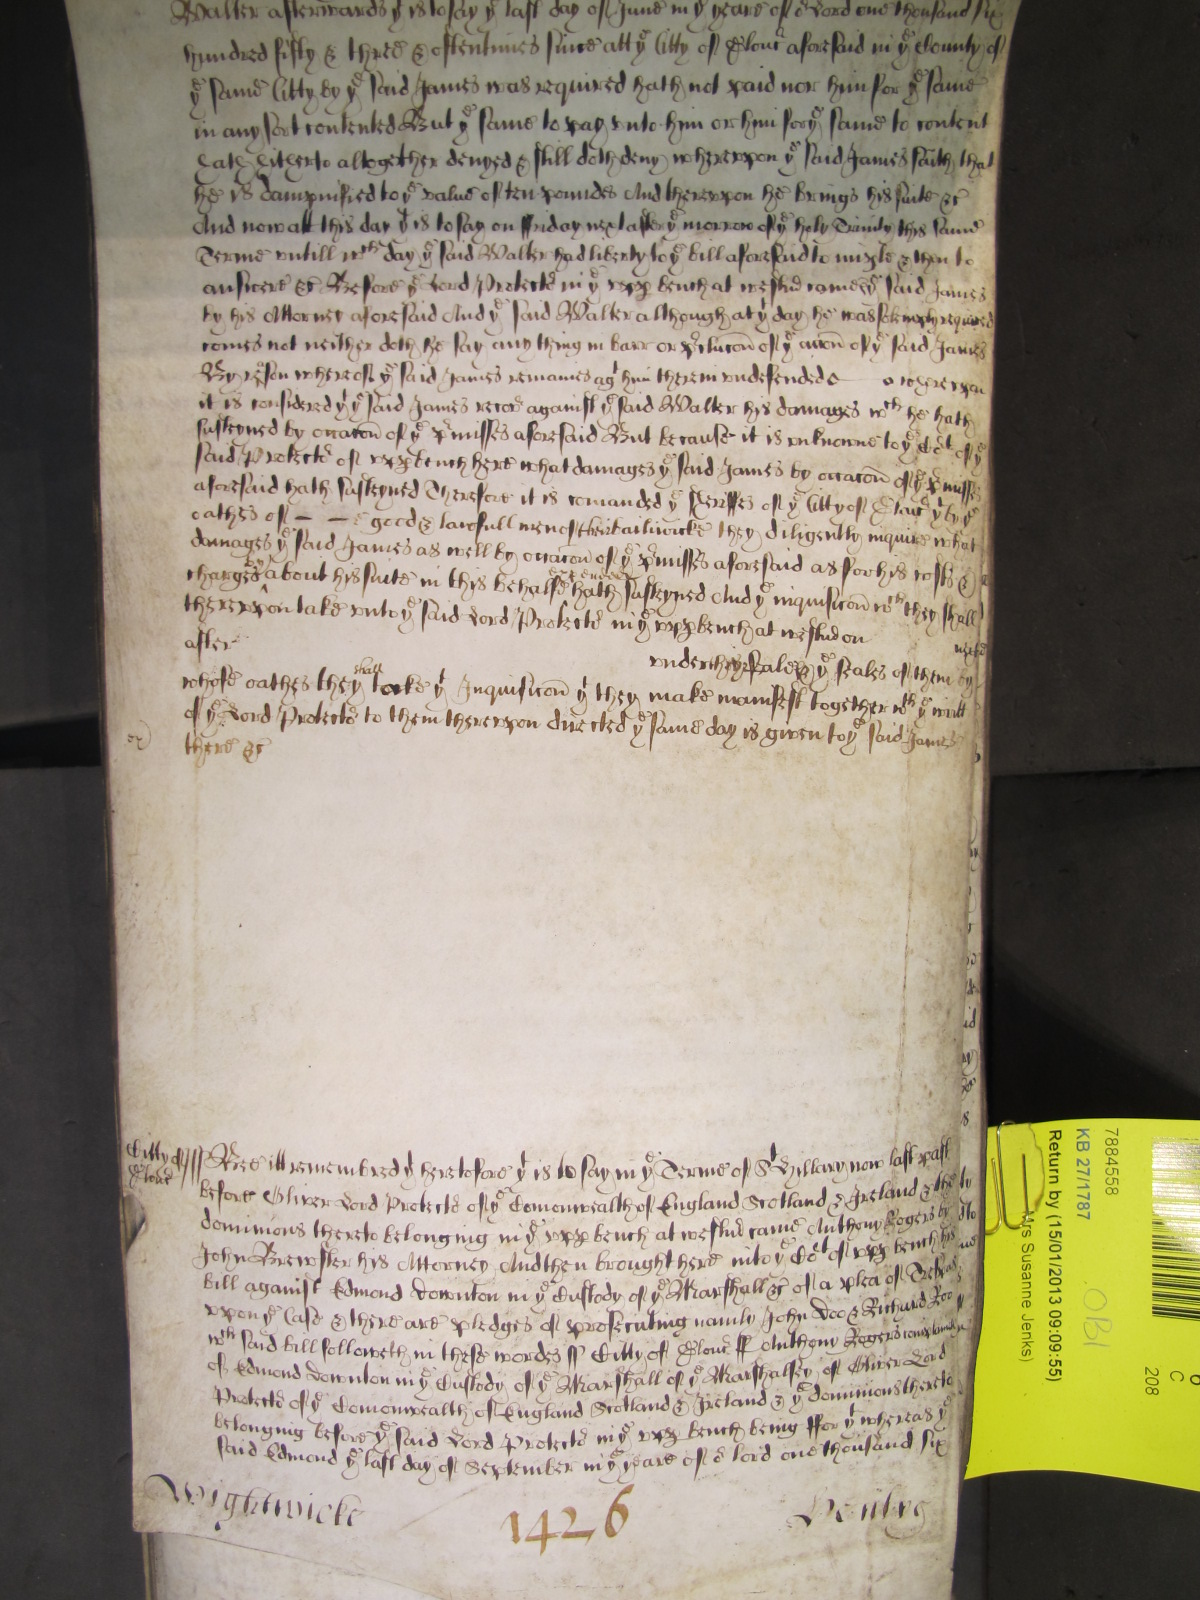 Walter afterwards yt is to say ye last day of June in ye yeare of or Lord one thousand six
hundred fifty & three & oftentimes since att ye Citty of Glouc aforesaid in ye County of
ye same Citty by ye said James was required hath not paid nor him for ye same
in any sort contented But ye same to pay vnto him or him for ye same to content
hath hitherto altogether denyed & still doth deny wherevpon ye said James saith that
he is dampnified to ye value of ten poundes And therevpon he brings his suite &c
And now att this day yt is to say on ffriday next after ye morrow of ye holy Trinity this same
Terme vntill wch day ye said Walter had liberty to ye bill aforesaid to imple & then to
answere &c Before ye Lord Protector in ye vpp bench at westmr came ye said James
by his Attorney aforesaid And ye said Walter although at yt day he was solempnly required
comes not neither doth he say any thing in barr or preclucon of ye accon of ye said James
By reson whereof ye said James remaines agt him therein vndefended wherevpon
it is considered yt ye said James recover against ye said Walter his damages wch he hath
susteyned by occacon of ye pmisses aforesaid But because it is vnknowne to ye Cort of ye
said Protector of vpp bench here what damages ye said James by occacon of ye pmisses
aforesaid hath susteyned Therefore it is comanded ye sheriffes of ye Citty of Glouc yt by ye
oathes of — — good & lawfull men of their bailiwicke they diligently inquire what
damages ye said James as well by occacon of ye pmisses aforesaid as for his costs &
charges by him about his suite in this behalfe expended hath susteyned And ye inquisicon wch they shall
therevpon take vnto ye said Lord Protector in ye vpp bench at westmr on
after vnder their seales & ye seales of them by
whose oathes they shall take yt Inquisicon yt they make manifest together wth ye writt
of ye Lord Protector to them therevpon directed ye same day is given to ye said James
there &c
Citty of Glouc ss Bee itt remembred yt heretofore yt is to say in ye Terme of St Hillary now last past
before Oliver Lord Protector of ye Comonwealth of England Scotland & Ireland & the
dominions thereto belonging in ye vpp bench at westmr came Anthony Rogers by
John Brewster his Attorney And then brought here into ye Cort of vpp bench his
bill against Edmond Downton in ye Custody of ye Marshall &c of a plea of Trespas
vpon ye Case & there are pledges of prosecuting namly John Doo & Richard Roo
wch said bill followeth in these wordes ss Citty of Glouc ss Anthony Rogers complaines
of Edmond Downton in ye Custody of ye Marshall of ye Marshalsey of Oliver Lord
Protector of ye Comonwealth of England Scotland & Ireland & ye dominions thereto
belonging before ye said Lord Protector in ye vpp bench being ffor yt whereas ye
said Edmond ye last day of September in ye yeare of or lord one thousand six
Wightwicke
1426
7884558
KB 27/1787
Return by (15/01/2013 09:09:55)
Mrs Susanne Jenks)
OBI
C
208